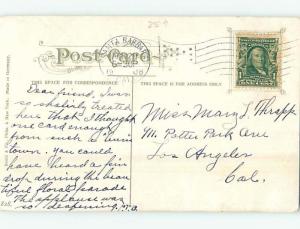 25¢
Post Card
THIS SPACE FOR CORRESPONDENCE
THIS SPACE IS FOR ADDRESS ONLY
SANTA BARBARA
Dear friend, I was
so shabbily treated
here that I thought
one card enough
from such a mean
town. You could
have heard a pin
drop during the beau
tiful floral parade
The applause was
so deafening.
Miss Mary L. Thrapp
Potter Park Ave
Los Angeles
Cal.